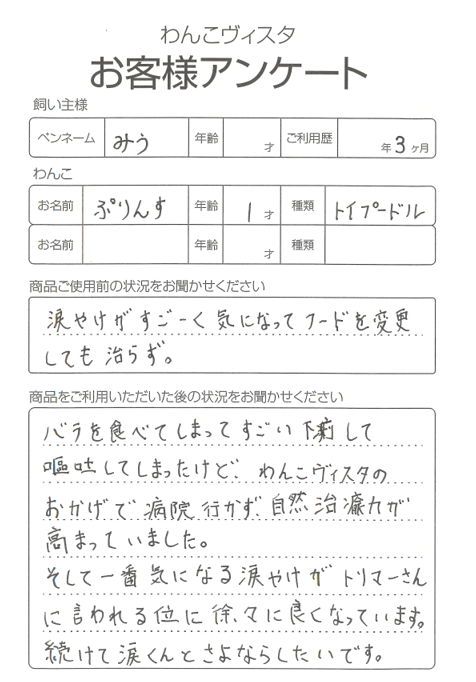 わんこヴィスタ
お客様アンケート
飼い主様
ペンネーム みう 年齢 才 ご利用歴 年 3 ヶ月
わんこ
お名前 ぷりんす 年齢 1 才 種類 トイプードル
お名前 年齢 才 種類
商品ご使用前の状況をお聞かせください
涙やけがすごーく気になってフードを変更
しても治らず。
商品をご利用いただいた後の状況をお聞かせください
バラを食べてしまってすごい下痢して
嘔吐してしまったけど、わんこヴィスタの
おかげで病院行かず、自然治癒力が
高まっていました。
そして一番気になる涙やけがトリマーさん
に言われる位に徐々に良くなっています。
続けて涙くんとさよならしたいです。